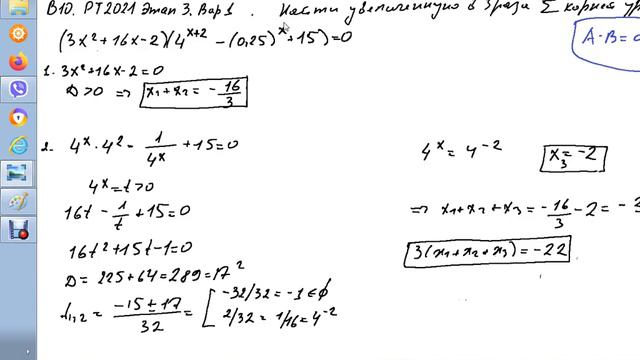 B10. РТ2021 Этап 3. Вар 1. Найти увеличенную в 3 раза Σ корней ур
(3x² + 16x - 2)(4^(x+2) - (0,25)^x + 15) = 0
A·B=0
1. 3x² + 16x - 2 = 0
D > 0 => x₁ + x₂ = -16/3
2. 4^x · 4² - 1/4^x + 15 = 0
4^x = t > 0
16t - 1/t + 15 = 0
16t² + 15t - 1 = 0
D = 225 + 64 = 289 = 17²
t₁,₂ = (-15 ± 17)/32 = [ -32/32 = -1 ∈ ∅
2/32 = 1/16 = 4^-2
4^x = 4^-2 x₃ = -2
=> x₁ + x₂ + x₃ = -16/3 - 2 = -
3(x₁ + x₂ + x₃) = -22